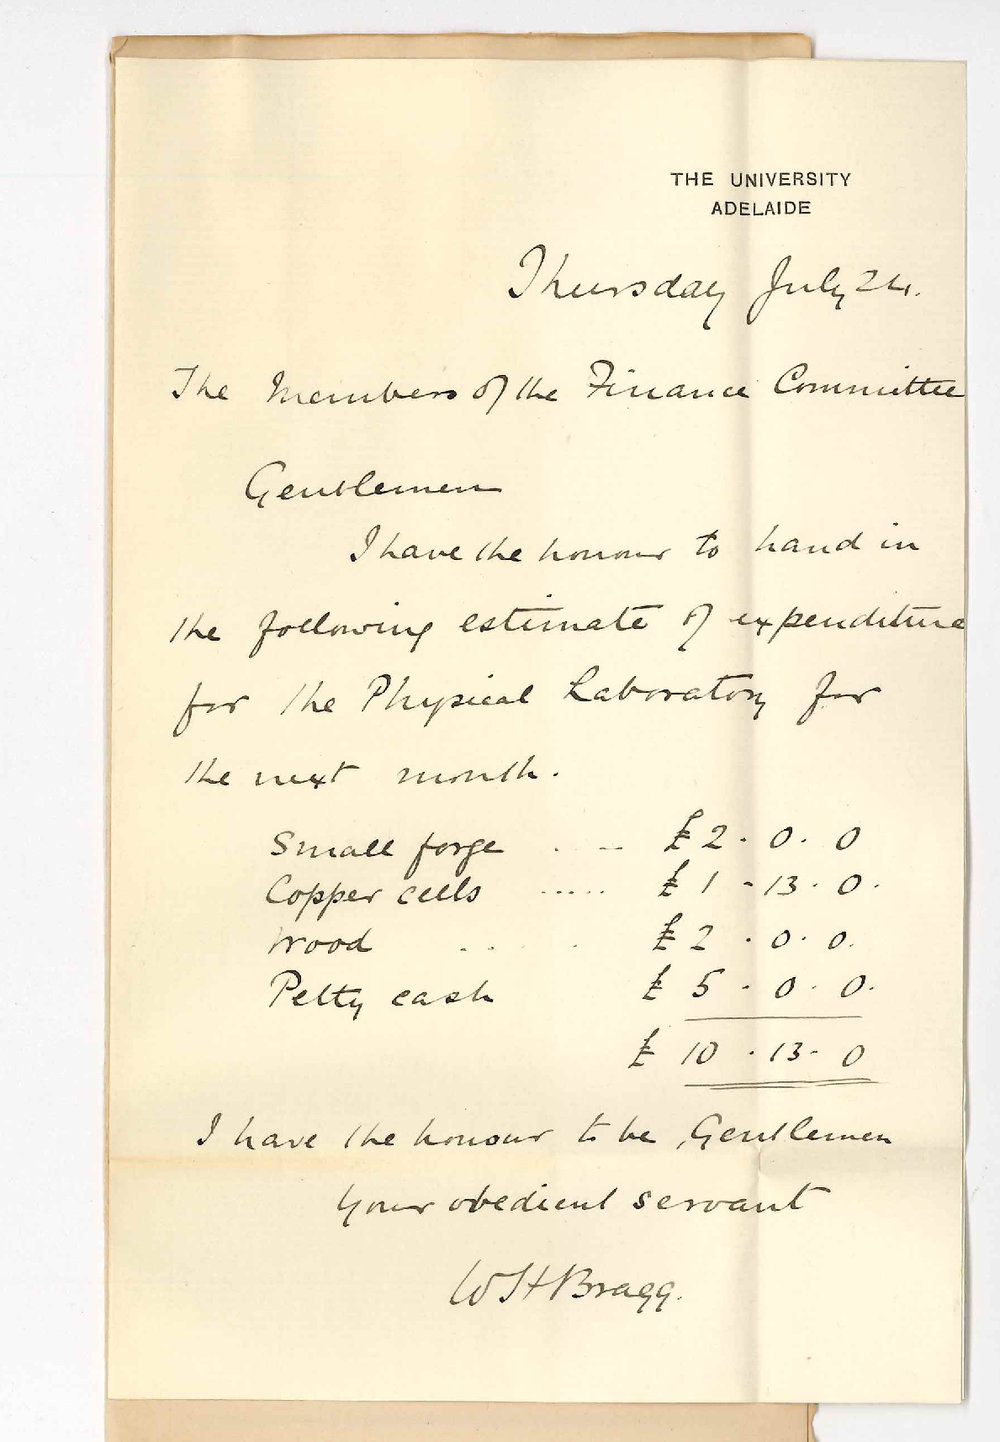 THE UNIVERSITY
ADELAIDE
Thursday July 24.
The Members of the Finance Committee
Gentlemen
I have the honour to hand in
the following estimate of expenditure
for the Physical Laboratory for
the next month.
Small forge . .. £2 . 0 . 0
Copper cells ..... £1 - 13 . 0.
Wood .. . £2 . 0 . 0.
Petty cash £5 . 0 . 0.
£10 . 13 - 0
I have the honour to be, Gentlemen
Your obedient servant
WHBragg.